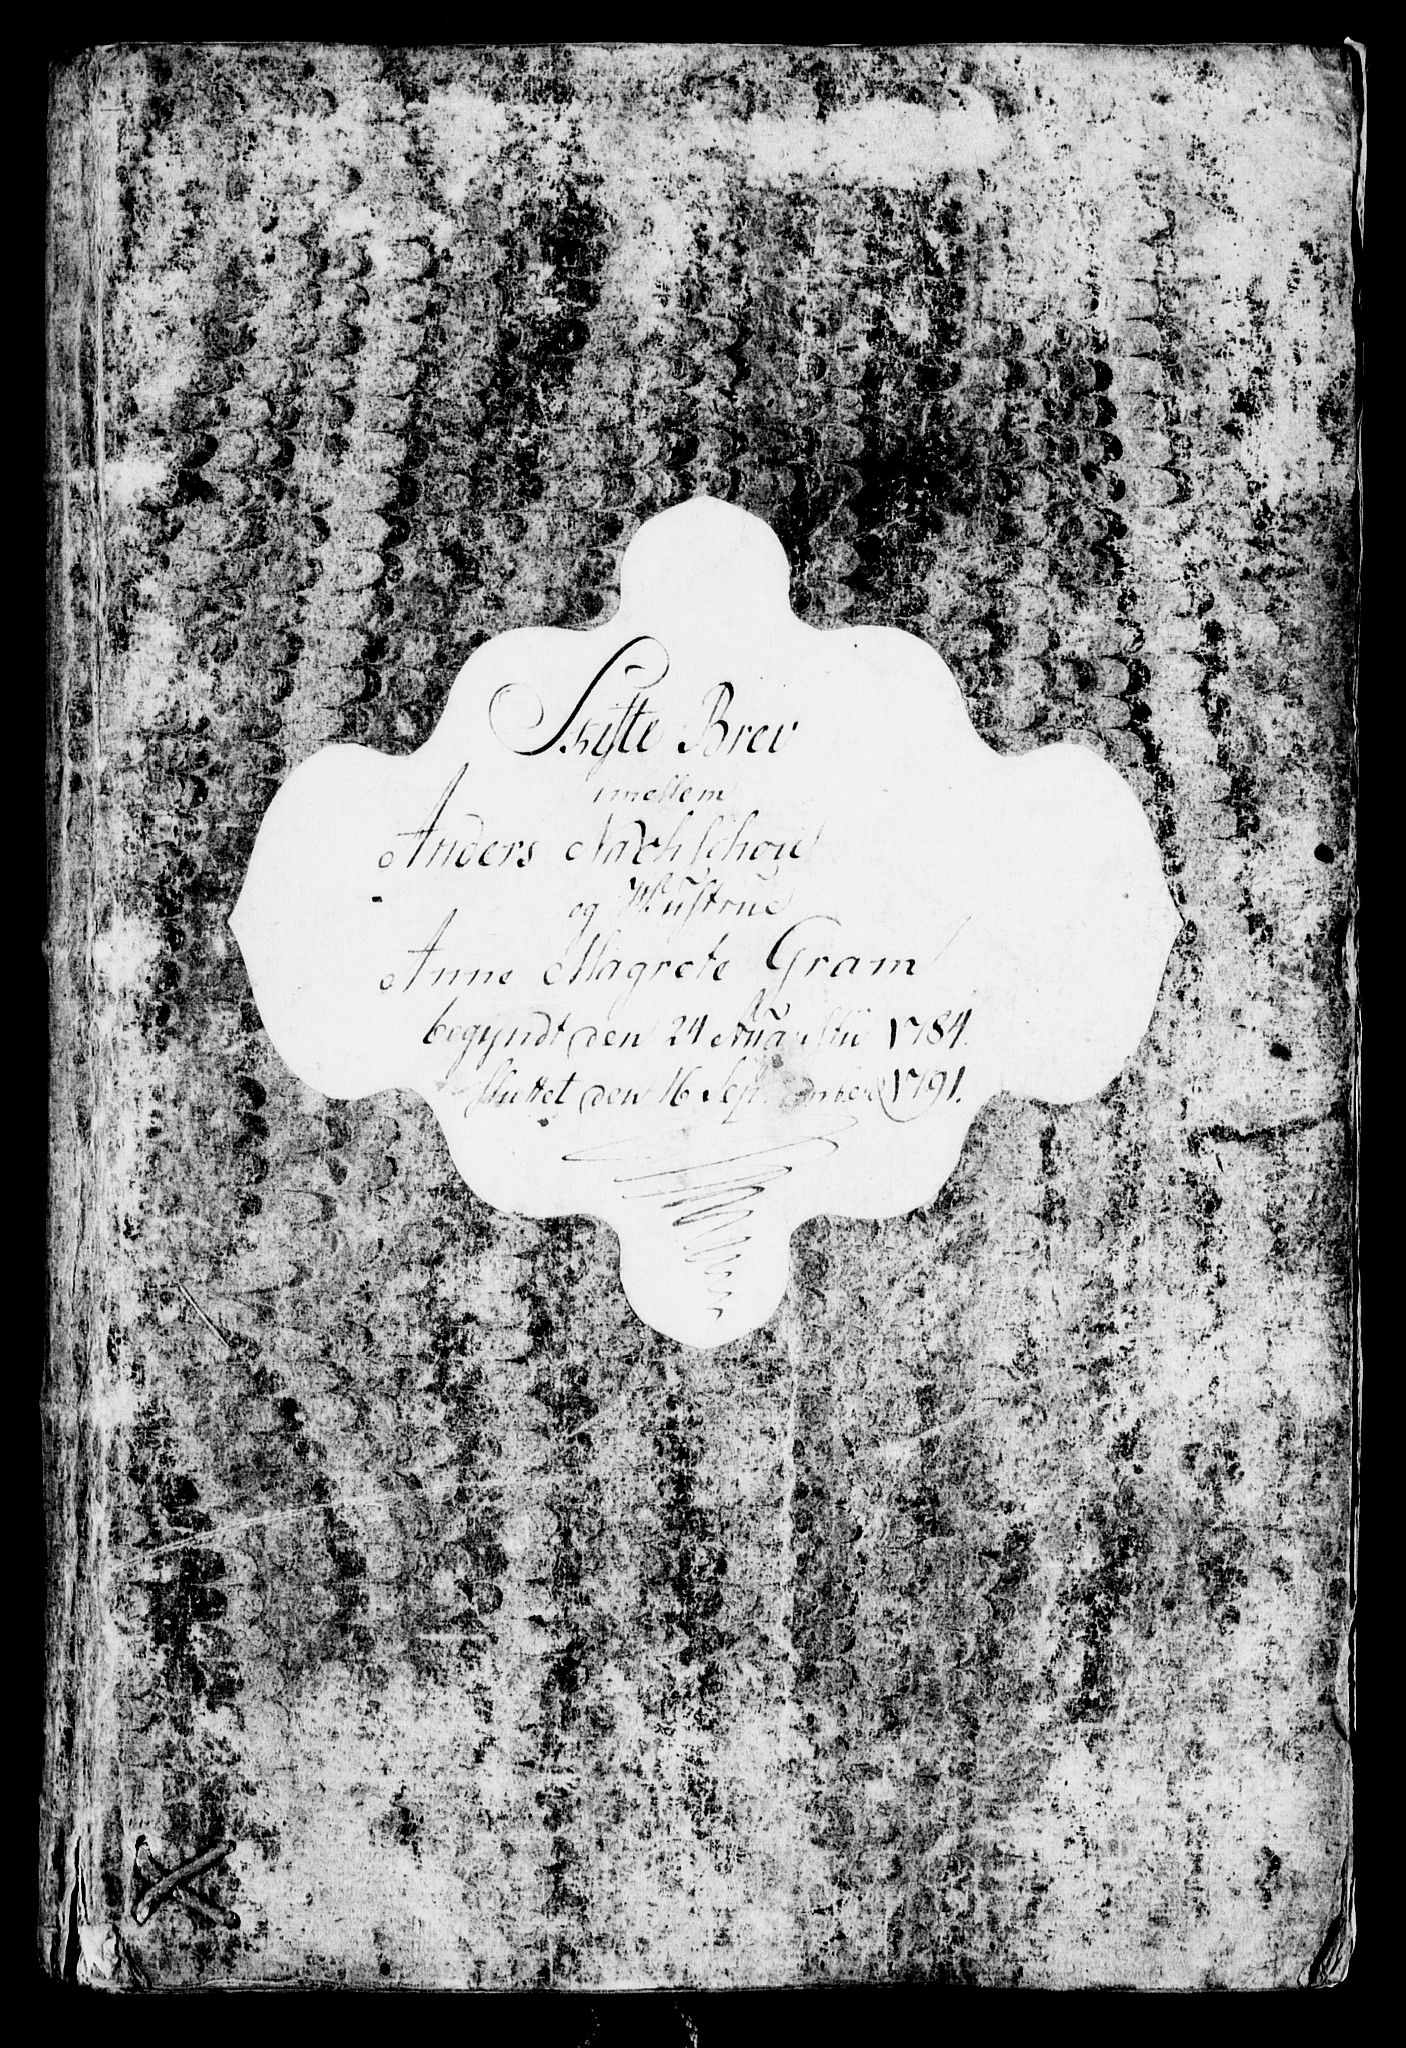 Skifte Brev
imellem
Anders Nachschou
og Hustrue
Anne Magrete Gram
begyndt den 24 Augustii 1784.
sluttet den 16 September 1791.